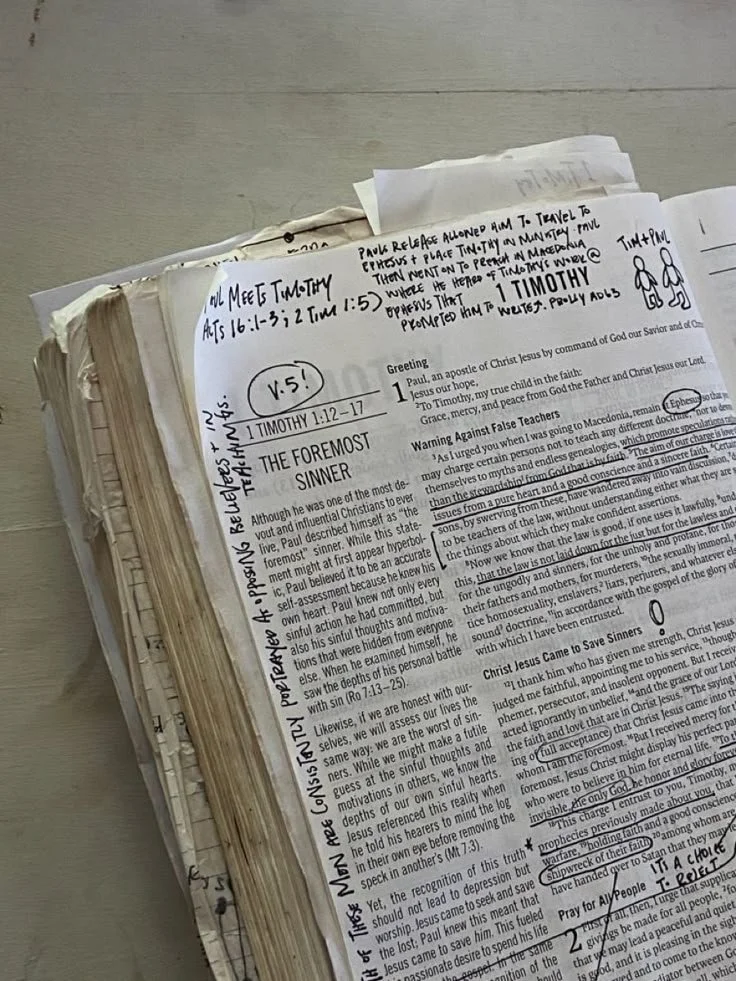 PAUL'S RELEASE ALLOWED HIM TO TRAVEL TO
EPHESUS + PLACE TIMOTHY IN MINISTRY. PAUL
THEN WENT ON TO PREACH IN MACEDONIA
WHERE HE HEARD OF TIMOTHY'S WORK @
EPHESUS THAT
PROMPTED HIM TO WRITE
PROLLY AD 63
TIM + PAUL
MEETS TIMOTHY
ACTS 16:1-3; 2 TIM 1:5)
1 TIMOTHY
V.5!
1 TIMOTHY 1:12–17
THE FOREMOST
SINNER
Although he was one of the most de-
vout and influential Christians to ever
live, Paul described himself as “the
foremost” sinner. While this state-
ment might at first appear hyperbol-
ic, Paul believed it to be an accurate
self-assessment because he knew his
own heart. Paul knew not only every
sinful action he had committed, but
also his sinful thoughts and motiva-
tions that were hidden from everyone
else. When he examined himself, he
saw the depths of his personal battle
with sin (Ro 7:13–25).
Likewise, if we are honest with our-
selves, we will assess our lives the
same way: we are the worst of sin-
ners. While we might make a futile
guess at the sinful thoughts and
motivations in others, we know the
depths of our own sinful hearts.
Jesus referenced this reality when
he told his hearers to mind the log
in their own eye before removing the
speck in another's (Mt 7:3).
Yet, the recognition of this truth
should not lead to depression but
worship. Jesus came to seek and save
the lost; Paul knew this meant that
Jesus came to save him. This fueled
passionate desire to spend his life
the gospel. In the same
OF THESE MEN ARE CONSISTENTLY PORTRAYED AS OPPOSING BELIEVERS + IN
TEACHINGS.
Greeting
1 Paul, an apostle of Christ Jesus by command of God our Savior and of
Jesus our hope,
2 To Timothy, my true child in the faith:
Grace, mercy, and peace from God the Father and Christ Jesus our Lord.
Warning Against False Teachers
3 As I urged you when I was going to Macedonia, remain at Ephesus so that
may charge certain persons not to teach any different doctrine, 4 nor to
themselves to myths and endless genealogies, which promote speculations
than the stewardship from God that is by faith. 5 The aim of our charge is
issues from a pure heart and a good conscience and a sincere faith.
sons, by swerving from these, have wandered away into vain discussion,
to be teachers of the law, without understanding either what they are
the things about which they make confident assertions.
8 Now we know that the law is good, if one uses it lawfully,
this, that the law is not laid down for the just but for the lawless and
for the ungodly and sinners, for the unholy and profane, for
their fathers and mothers, for murderers, 10 the sexually immoral,
tice homosexuality, enslavers, liars, perjurers, and whatever else
sound doctrine, 11 in accordance with the gospel of the glory of
with which I have been entrusted.
Christ Jesus Came to Save Sinners
12 I thank him who has given me strength, Christ Jesus
judged me faithful, appointing me to his service, 13 though
phemer, persecutor, and insolent opponent. But I
acted ignorantly in unbelief, 14 and the grace of our Lord
the faith and love that are in Christ Jesus. 15 The saying
ing of full acceptance, that Christ Jesus came into
whom I am the foremost. 16 But I received mercy for
foremost, Jesus Christ might display his perfect
who were to believe in him for eternal life. 17 To
invisible, the only God, be honor and glory
18 This charge I entrust to you, Timothy,
prophecies previously made about you, that
warfare, 19 holding faith and a good conscience
shipwreck of their faith, 20 among whom are
have handed over to Satan that they may
IT'S A CHOICE
TO REJECT
Pray for All People
2 First of all, then, I urge that
givings be made for all people,
that we may lead a peaceful and quiet
is good, and it is pleasing in the